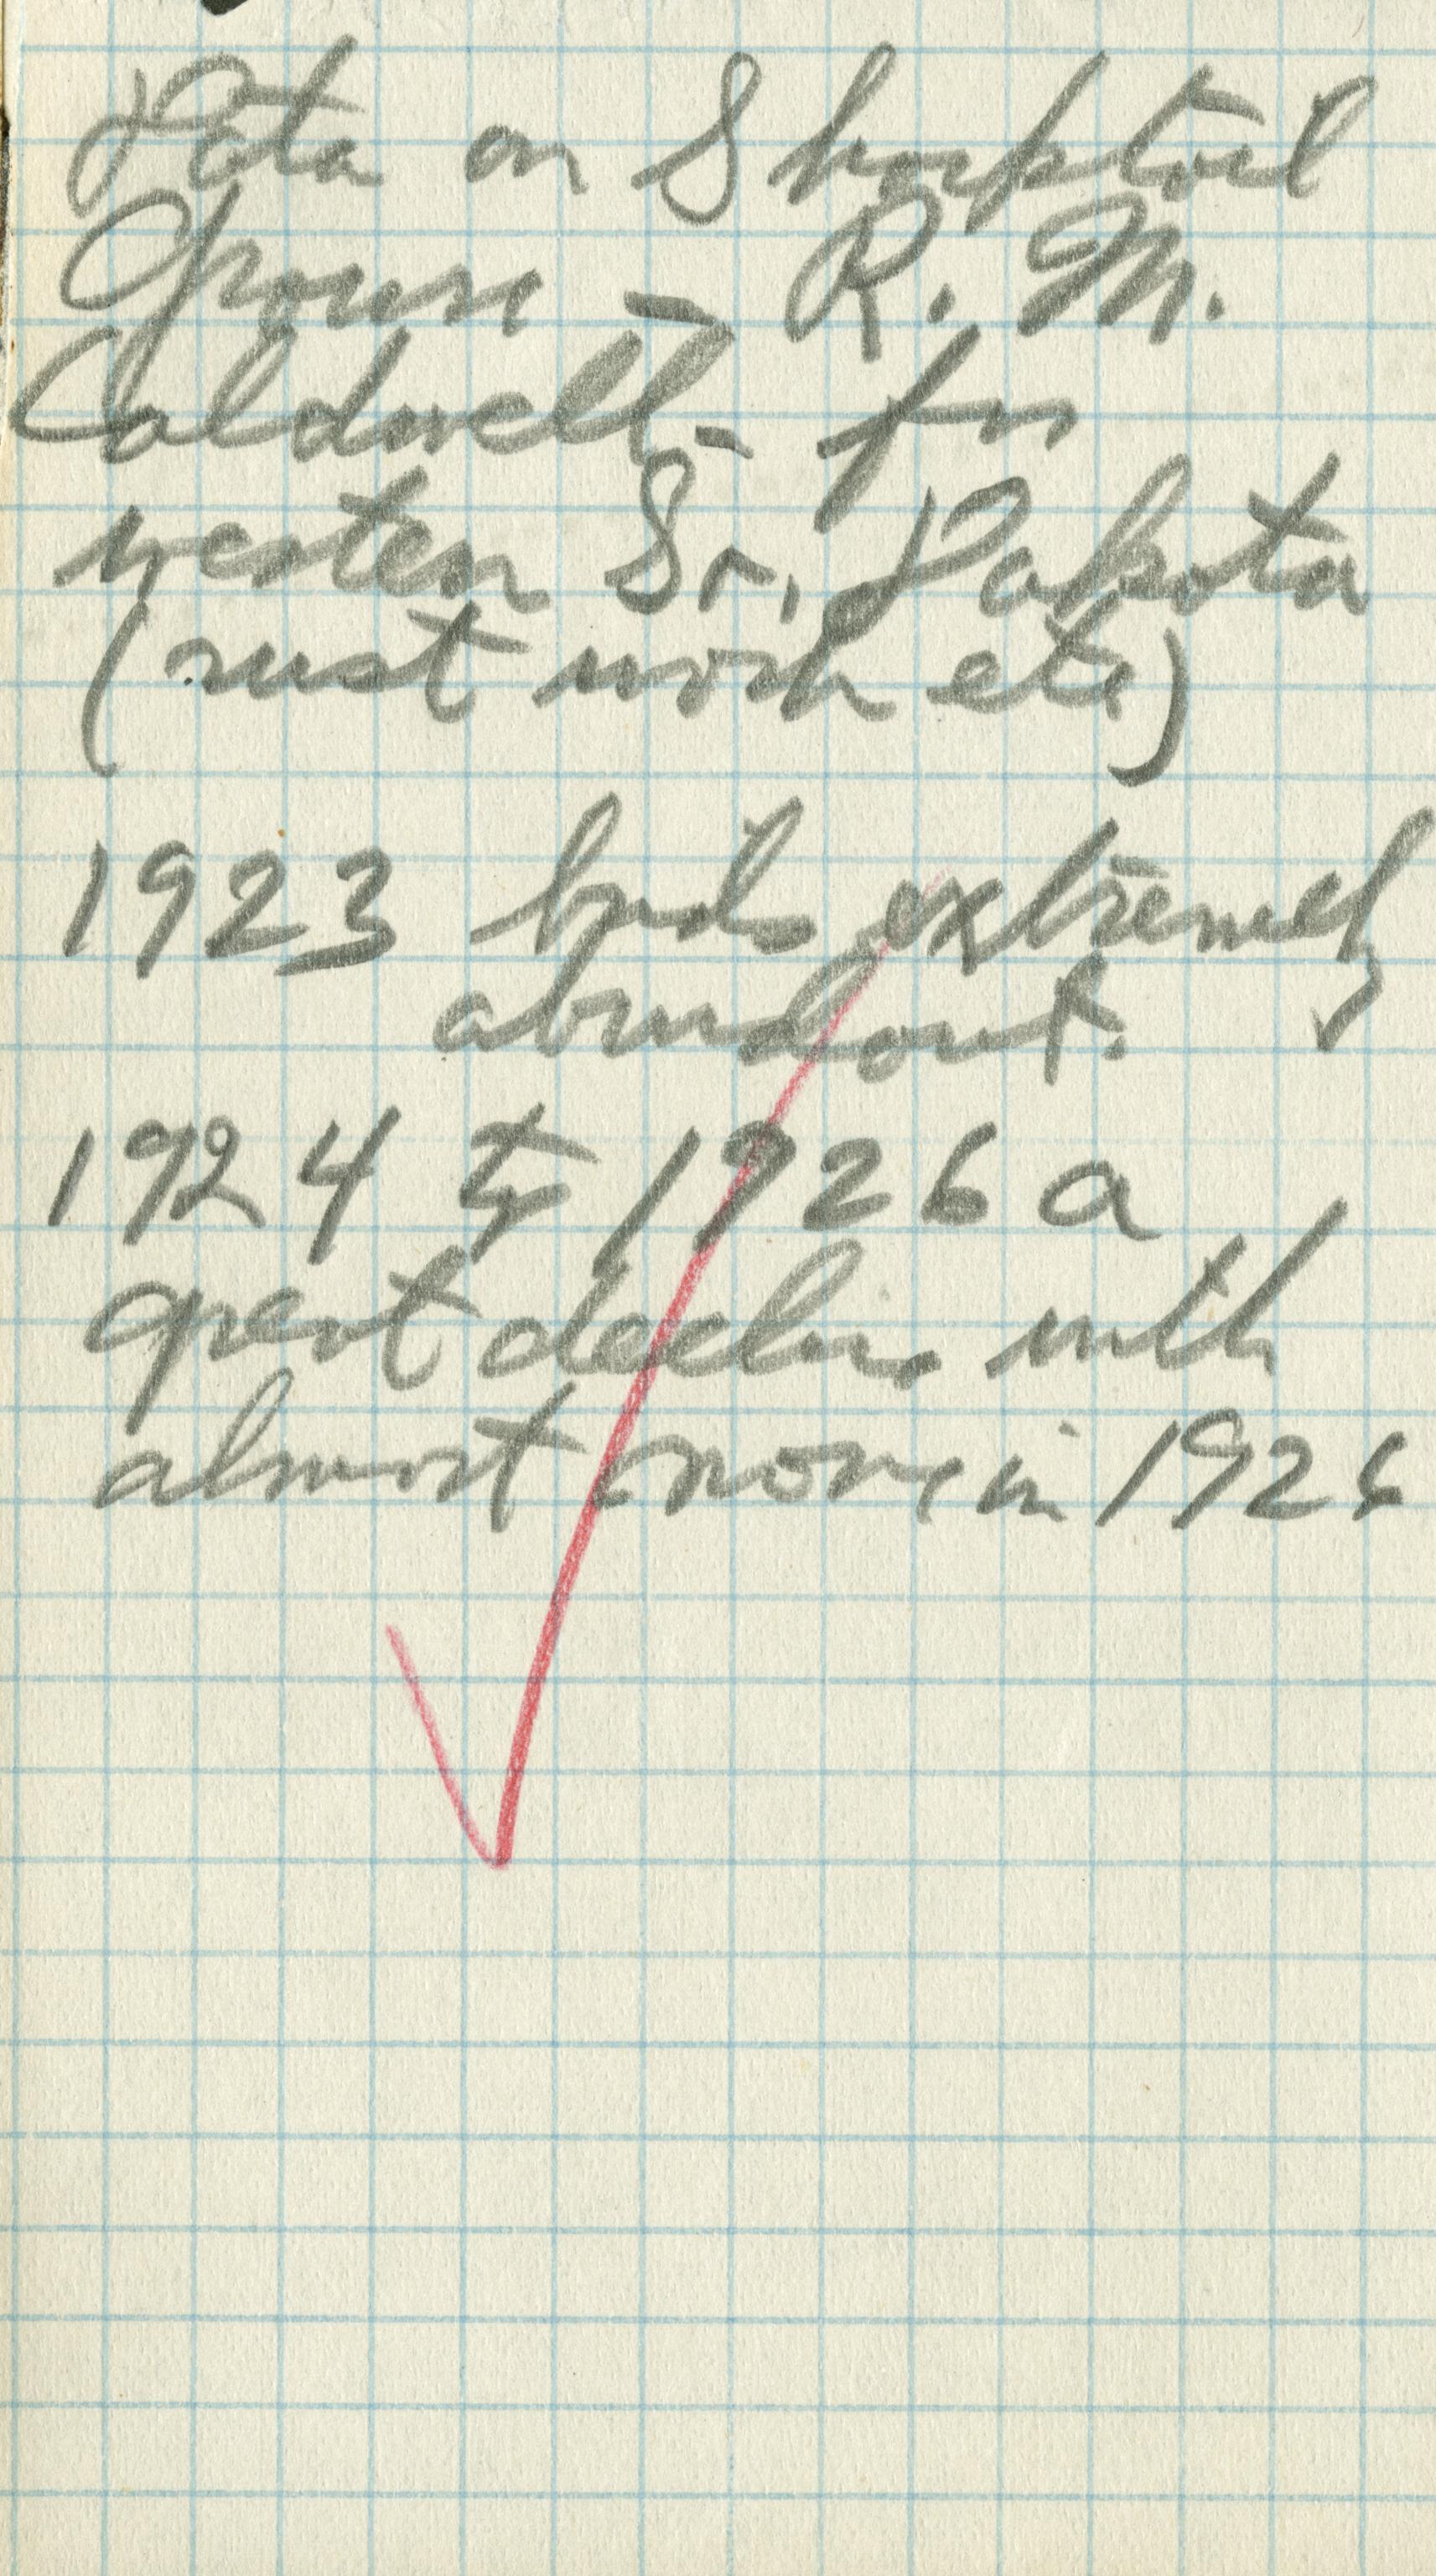 Data on Sharptail
Grouse - R. M.
Caldwell - for
western So. Dakota
(rust work etc)
1923 birds extremely
abundant.
1924 to 1926 a
great decline with
almost none in 1926